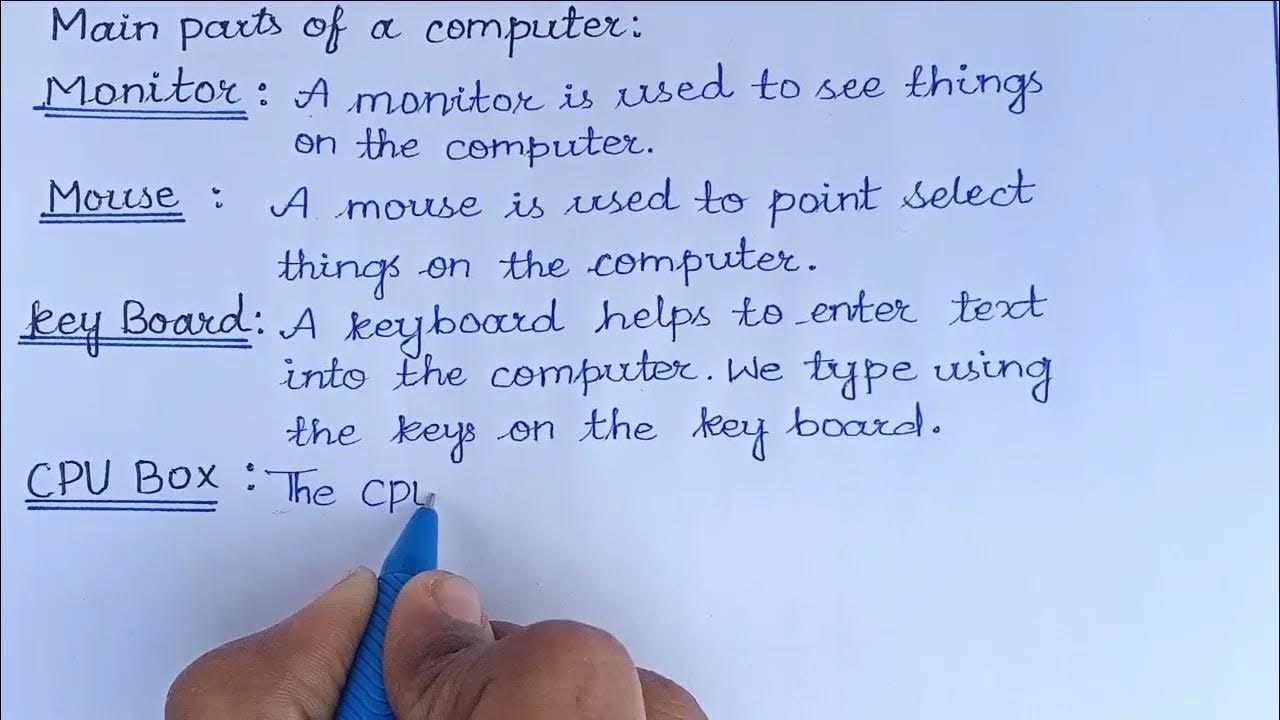 Main parts of a computer:
Monitor: A monitor is used to see things
on the computer.
Mouse : A mouse is used to point select
things on the computer.
key Board: A keyboard helps to enter text
into the computer. We type using
the keys on the key board.
CPU Box : The CPU